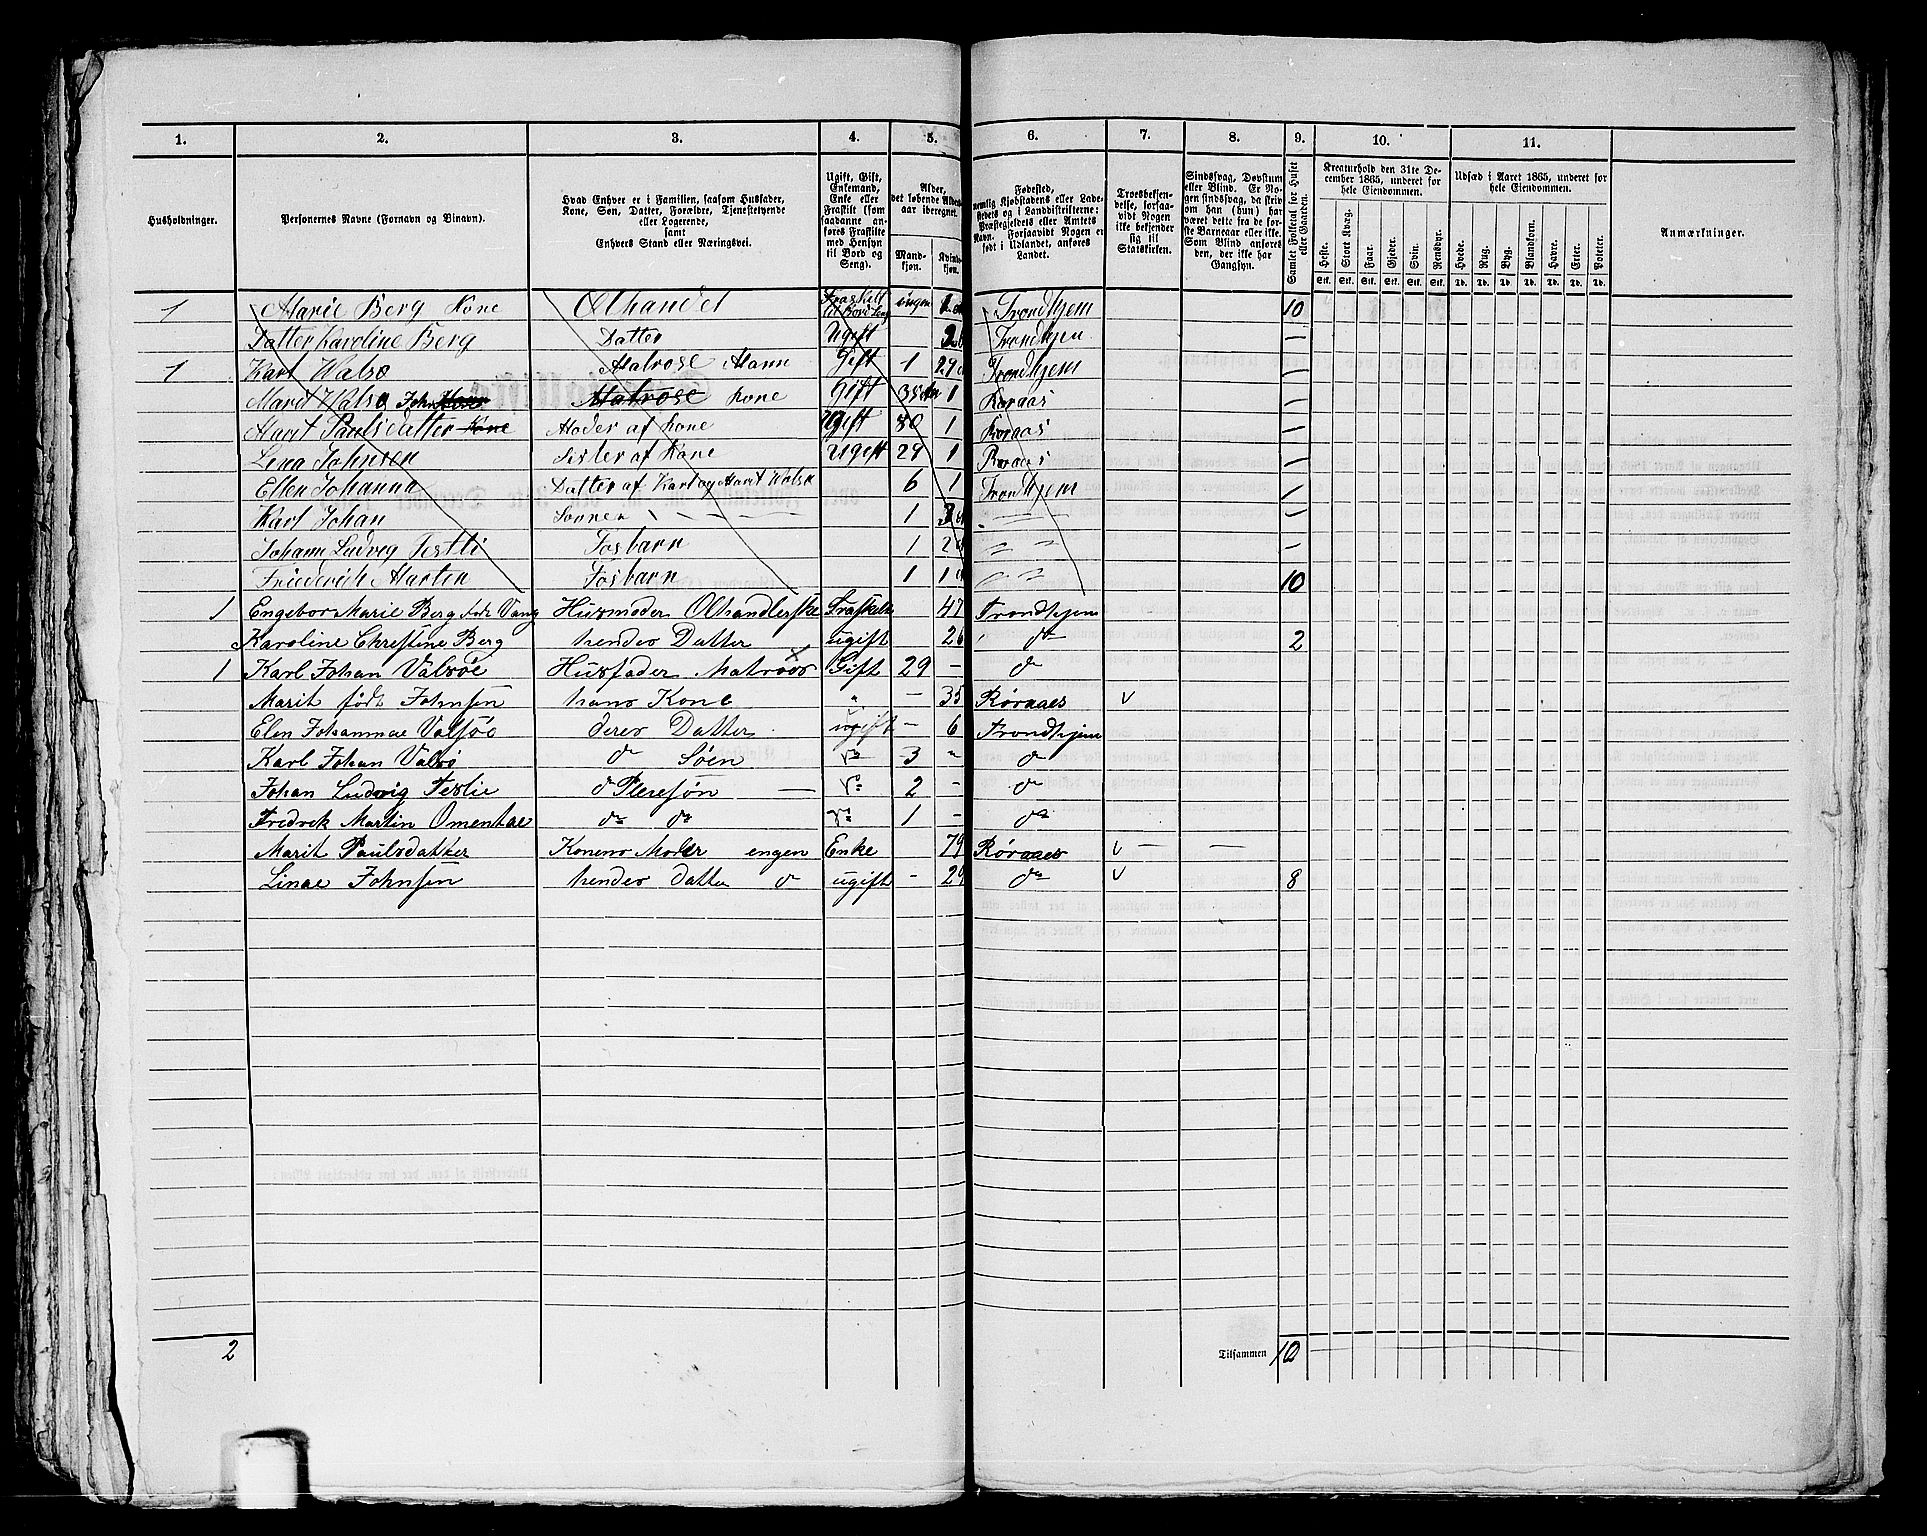 1. 2. 3. 4. 5. 6. 7. 8. 9. 10. 11.
Husholdninger.
Personernes Navne (Fornavn og Binavn).
Hvad Enhver er i Familien, saasom Husfader, Kone, Søn, Datter, Forældre, Tjenestetyende eller Logerende, samt Enhvers Stand eller Næringsvei.
Ugift, Gift, Enkemand, Enke eller Fraskilt (som saadanne anføres Fraskilte med Hensyn til Bord og Seng).
Alder, det løbende Alders-aar iberegnet.
Mandkjøn. Kvindekjøn.
Fødested, nemlig Kjøbstadens eller Ladestedets og i Landdistrikterne: Præstegjeldets eller Amtets Navn. Forsaavidt Nogen er født i Udlandet, anføres Landet.
Troesbekjendelse, forsaavidt Nogen ikke bekjender sig til Statskirken.
Sindssvag, Døvstum eller Blind. Er Nogen sindssvag, da skrives om han (hun) har været dette fra de første Barneaar eller ikke. Som Blind anføres den, der ikke har Gangsyn.
Samlet Folketal for Huset eller Gaarden.
Kreaturhold den 31te December 1865, underet for hele Eiendommen.
Heste. Stort Kvæg. Faar. Gjeder. Svin. Rensdyr.
Stk. Stk. Stk. Stk. Stk. Stk.
Udsæd i Aaret 1865, underet for hele Eiendommen.
Hvede. Rug. Byg. Blandkorn. Havre. Erter. Poteter.
Td. Td. Td. Td. Td. Td. Td.
Anmærkninger.
1 Marie Berg Kone Ølhandel Fraskilt til Bord Seng ingen Trondhjem 10
Datter Karoline Berg Datter Ugift Trondhjem —
1 Karl Walsø Matrose Mann Gift 1 29 Trondhjem —
Marit Walsø John Matrose Kone Gift 35 1 Roraas —
Marit Pauls datter Kone Moder af Kone Ugift 80 1 Roraas —
Lina Johnsen Sister af Kone Ugift 29 1 Roraas —
Ellen Johanna Datter af Karl og Marit Walsø 6 1 Trondhjem —
Karl Johan Sonner 1 —
Johann Ludvig Testli Fosbarn 1 2 —
Friederich Marten Fosbarn 1 1 10
1 Engebor Marie Berg føds Vang Husmoder Ølhandlerske Fraskilt 47 Trondhjem
Karoline Christine Berg hendes Datter ugift 26 do 2
1 Karl Johan Valsøe Husfader Matros Gift 29 — do
Marit født Johnsen hans Kone " — 35 Røraaes v
Elen Johannae Valsøe deres Datter ugift — 6 Trondhjem
Karl Johan Valsø do Søen 3 " do
Johan Ludvig Teslie d Pleresøn — 2 - do
Fredrek Martin Omentae do do 1 - do
Marit Paulsdatter Konens Moder engen Enke 79 Røraaes v — —
Linae Johnsen hendes datter do ugift - 29 do v 8
2 Tilsammen 10